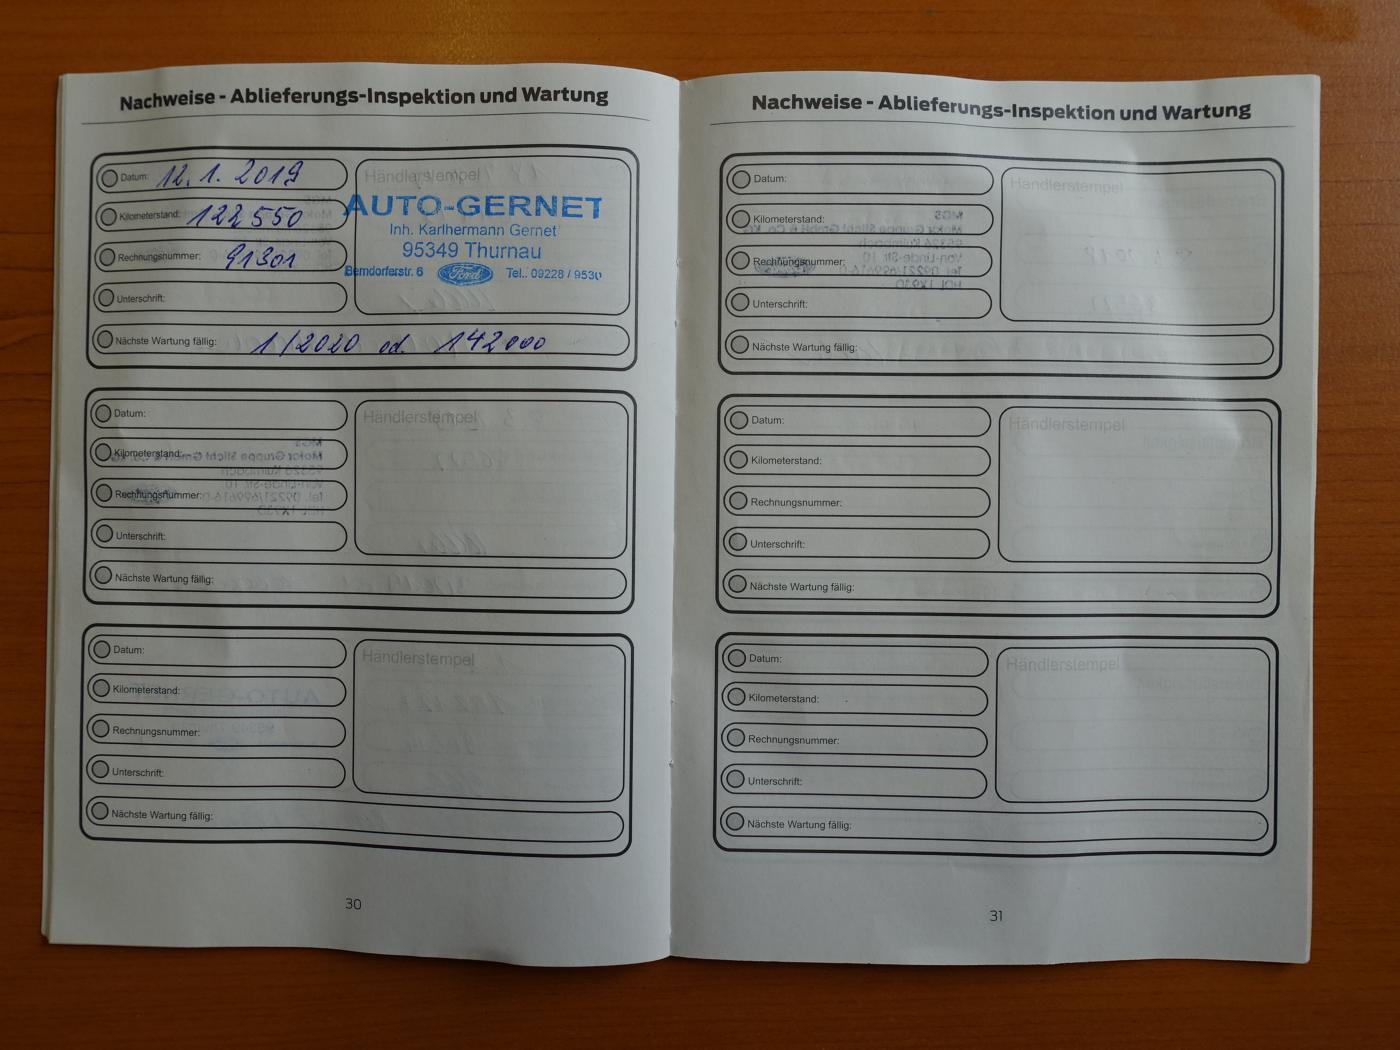 Nachweise - Ablieferungs-Inspektion und Wartung
Datum: 12.1.2019
Kilometerstand: 122550
Rechnungsnummer: 91301
Unterschrift:
Händlerstempel
AUTO-GERNET
Inh. Karlhermann Gernet
95349 Thurnau
Berndorferstr. 6 Ford Tel.. 09228 / 9530
Nächste Wartung fällig: 1/2020 od. 142000
Datum:
Kilometerstand:
Rechnungsnummer:
Unterschrift:
Händlerstempel
Nächste Wartung fällig:
Datum:
Kilometerstand:
Rechnungsnummer:
Unterschrift:
Händlerstempel
Nächste Wartung fällig:
30
Nachweise - Ablieferungs-Inspektion und Wartung
Datum:
Kilometerstand:
Rechnungsnummer:
Unterschrift:
Händlerstempel
Nächste Wartung fällig:
Datum:
Kilometerstand:
Rechnungsnummer:
Unterschrift:
Händlerstempel
Nächste Wartung fällig:
Datum:
Kilometerstand:
Rechnungsnummer:
Unterschrift:
Händlerstempel
Nächste Wartung fällig:
31